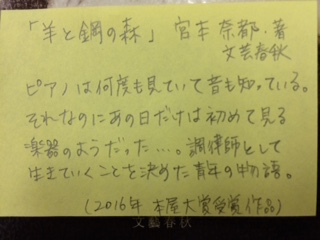 「羊と鋼の森」 宮下奈都・著
文芸春秋
ピアノは何度も見ていて音も知っている。
それなのにあの日だけは初めて見る
楽器のようだった…。調律師として
生きていくことを決めた青年の物語。
(2016年 本屋大賞受賞作品)
文藝春秋